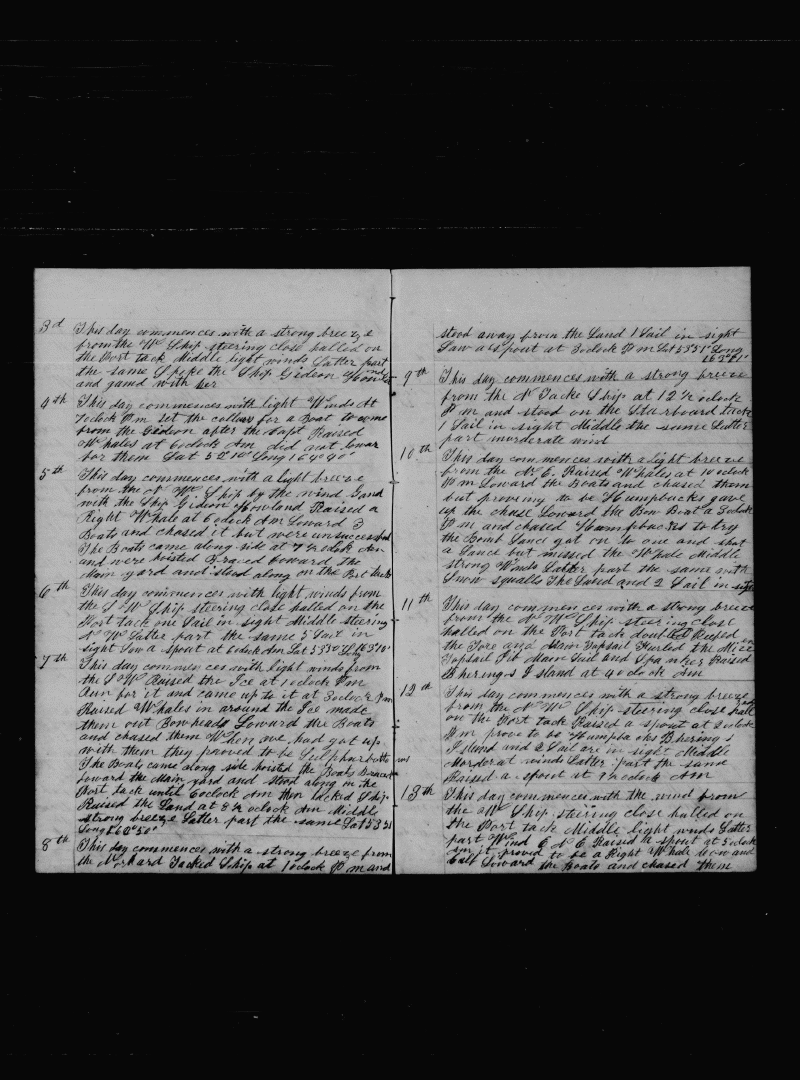 3rd This day commences with a strong breeze
from the W Ship steering close halled on
the Port tack Middle light winds Latter part
the same Speke the Ship Gideon Howland
and gamd with her
4th This day commences with light Winds At
7 oclock Pm set the collars for a Boat to come
from the Gideon after the Capt Raised
Whales at 6 oclock Am did not lower
for them Lat 52°10' Long 164°40'
5th This day commences with a light breeze
from the N W Ship by the wind Gamd
with the Ship Gideon Howland Raised a
Right Whale at 6 oclock Am Loward 3
Boats and chased it but were unsuccessfull
The Boats came along side at 7½ oclock Am
and were hoisted Braced foward the
Main yard and stood along on the Port tack
6th This day commences with light winds from
the S W Ship steering close halled on the
Port tack one Sail in sight Middle steering
N W Latter part the same 5 Sail in
sight Saw a spout at 6 oclock Am Lat 53°30' Long 163°10'
7th This day commences with light winds from
the S W Raised the Ice at 1 oclock Pm
Run for it and came up to it at 3 oclock Pm
Raised Whales in around the Ice made
them out Bowheads Loward the Boats
and chased them When we had got up
with them they prooved to be Sulpharbottoms
The Boats came along side hoisted the Boats Braced
foward the Main yard and stood along on the
Port tack until 6 oclock Am then tacked Ship
Raised the Land at 8½ oclock Am Middle
strong breeze Latter part the same Lat 53 51
Long 162°50'
8th This day commences with a strong breeze from
the Northard Tacked Ship at 1 oclock Pm and
stood away from the Land 1 Sail in sight
Saw a spout at 3 oclock Pm Lat 53°51' Long
162°41'
9th This day commences with a strong breeze
from the N Tacke Ship at 12½ oclock
Pm and stood on the Starboard tack
1 Sail in sight Middle the same Latter
part murderate wind
10th This day commences with a light breeze
from the N. E. Raised Whales at 10 oclock
Pm Loward the Boats and chased them
but proving to be Humpbacks gave
up the chase Loward the Bow Boat a 3 oclock
Pm and chased Humpbacks to try
the Bomb Lance got on to one and shot
a Lance but missed the Whale Middle
strong Winds Latter part the same with
Snow squalls The Land and 2 Sail in site
11th This day commences with a strong breeze
from the N W Ship steering close
halled on the Port tack doubled Reefed
the Fore and Main Topsail Furled the Mizen
Topsail Jib Main Sail and Spanker Raised
Bherings Island at 4 oclock Am
12th This day commences with a strong breeze
from the N W Ship steering close hall
on the Port tack Raised a spout at 2 oclock
Pm prove to be Humpbacks Bherings
Island and 2 Sail are in sight Middle
Morderat winds Latter part the same
Raised a spout at 9½ oclock Am
13th This day commences with the wind from
the W Ship steering close halled on
the Port tack Middle light winds Latter
part Wind E N E Raised the spout at 5 oclock
Am it proved to be a Right Whale Cow and
calf Loward the Boats and chased them